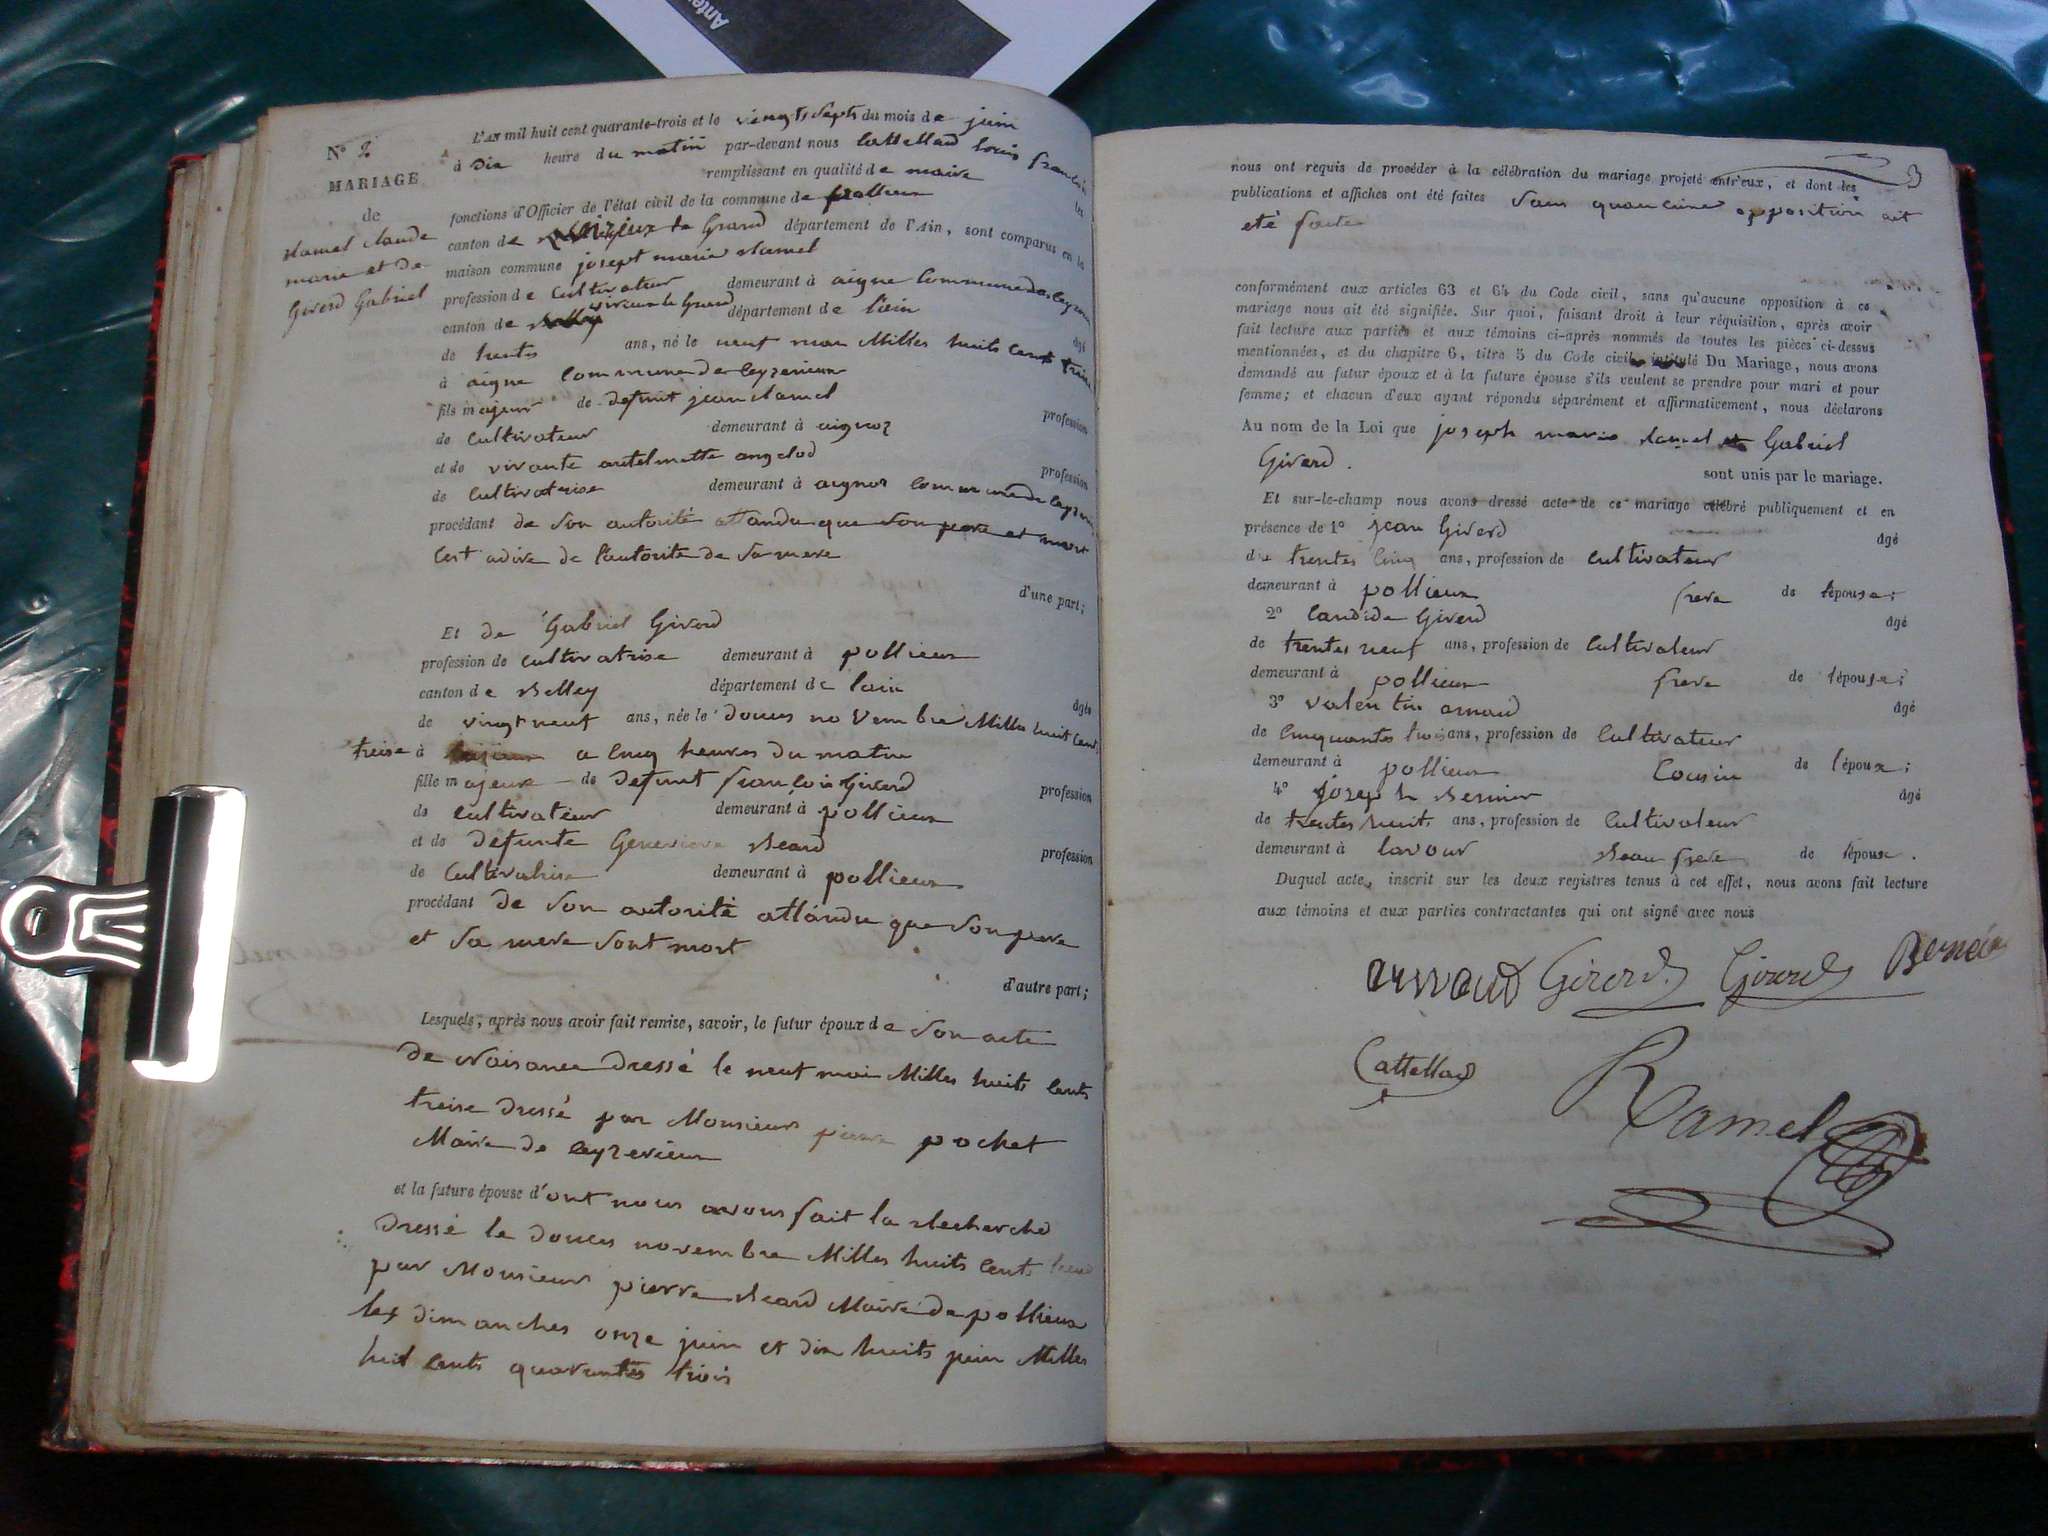 Anten
N° 2
MARIAGE
de
Ramel Claude
marie et de
Girerd Gabriel
L'AN mil huit cent quarante-trois et le vingt Sept du mois de juin
à Dix heure du matin par-devant nous Cattelland louis francois
remplissant en qualité de maire les
fonctions d'Officier de l'état civil de la commune de pollieux
canton de virieux le Grand département de l'Ain, sont comparus en la
maison commune joseph marie Ramel
profession de Cultivateur demeurant à aigne Commune de Ceyzerieux
canton de virieux le Grand département de l'ain âgé
de trentes ans, né le neuf mai Milles huits Cents treise
à aigne Commune de Ceyzerieux
fils majeur de defunt jean Ramel profession
de Cultivateur demeurant à aignoz
et de vivante antelmette angelod profession
de Cultivatrise demeurant à aignoz Commune de Ceyzerieux
procédant de Son autorité attandu que Son pere et mort
Cest adire de l'autorite de Sa mere
d'une part;
Et de Gabriel Girerd
profession de Cultivatrise demeurant à pollieux
canton de Belley département de lain âgée
de vingt neuf ans, née le Douces novembre Milles huit Cent
treise à a Cinq heures du matin
fille majeure de Defunt francois Girerd profession
de Cultivateur demeurant à pollieux
et de Defunte Genevieve Beard profession
de Cultivatrise demeurant à pollieux
procédant de Son autorité attandu que Son pere
et Sa mere Sont mort
d'autre part;
Lesquels, après nous avoir fait remise, savoir, le futur époux de Son acte
de Naisance Dressé le neuf mai Milles huits Cents
treise Dressé par Monsieur pierre pochet
Maire de Ceyzerieux
et la future épouse d'ont nous avons fait la Recherche
Dressé le Douces novembre Milles huits Cents treise
par Monsieur pierre Beard Maire de pollieux
les Dimanches onze juin et dix huits juin Milles
huit Cents quarantes trois
3
nous ont requis de procéder à la célébration du mariage projeté entr'eux, et dont les
publications et affiches ont été faites Sans quaucune opposition ait
eté faite
conformément aux articles 63 et 64 du Code civil, sans qu'aucune opposition à ce
mariage nous ait été signifiée. Sur quoi, faisant droit à leur réquisition, après avoir
fait lecture aux parties et aux témoins ci-après nommés de toutes les pièces ci-dessus
mentionnées, et du chapitre 6, titre 5 du Code civil, intitulé Du Mariage, nous avons
demandé au futur époux et à la future épouse s'ils veulent se prendre pour mari et pour
femme; et chacun d'eux ayant répondu séparément et affirmativement, nous déclarons
Au nom de la Loi que joseph marie Ramel et Gabriel
Girerd.
sont unis par le mariage.
Et sur-le-champ nous avons dressé acte de ce mariage célébré publiquement et en
présence de 1° Jean Girerd âgé
de trentes Cinq ans, profession de Cultivateur
demeurant à pollieux frere de l'épouse;
2° Candide Girerd âgé
de trentes neuf ans, profession de Cultivateur
demeurant à pollieux frere de l'épouse;
3° valentin arnaud âgé
de Cinquantes trois ans, profession de Cultivateur
demeurant à pollieux Cousin de l'époux;
4° joseph Bernier âgé
de trentes huit ans, profession de Cultivateur
demeurant à lavour Beau frere de l'époux.
Duquel acte, inscrit sur les deux registres tenus à cet effet, nous avons fait lecture
aux témoins et aux parties contractantes qui ont signé avec nous
arnaud Girerd Girerd Bernier
Cattelland
Ramel